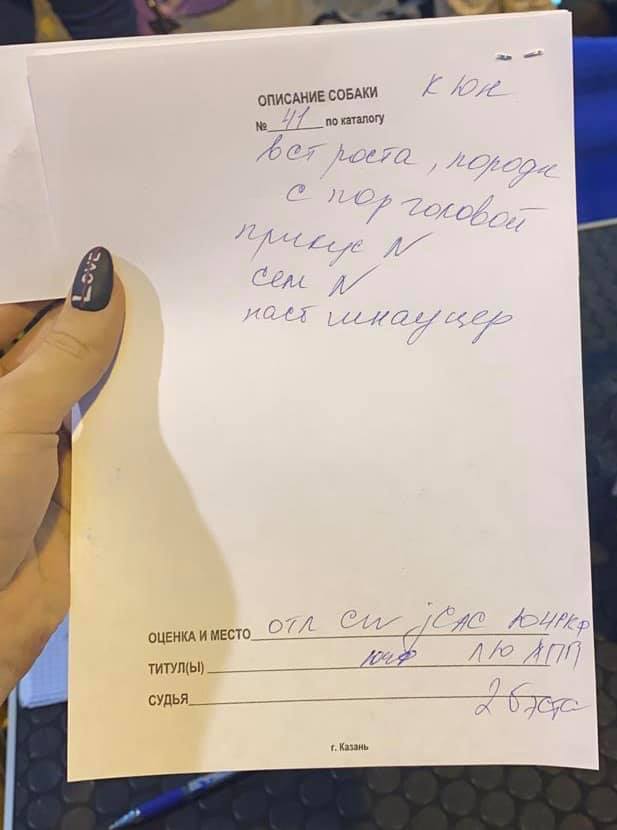 к юн
ОПИСАНИЕ СОБАКИ
№ 41 по каталогу
в ст роста, породн
с пор головой
прикус N
сем N
наст шнауцер
ОЦЕНКА И МЕСТО отл CW jCAC ЮЧРКФ
ТИТУЛ(Ы) ЮЧФ ЛЮ ЛПП
СУДЬЯ 2 бэста
г. Казань
LOVE